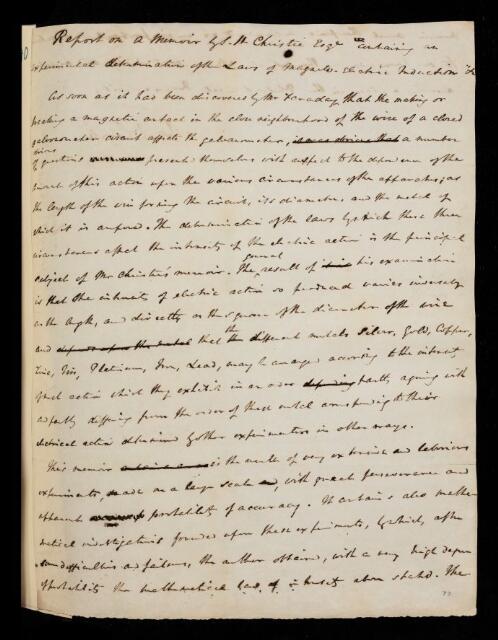 Report on a Memoir by S. H. Christie Esqr containing an
experimental determination of the Laws of Magneto-Electric Induction
As soon as it had been discovered by Mr Faraday that the making or
breaking a magnetic contact in the close neighbourhood of the wire of a closed
galvanometer circuit affects the galvanometer, it was obvious that a number
of questions present themselves with respect to the dependence of the
amount of this action upon the various circumstances of the apparatus; as
the length of the wire forming the circuit, its diameter, and the metal of
which it is composed. The determination of the laws by which these three
circumstances affect the intensity of the electric action is the principal
general
subject of Mr Christie's memoir. The result of his examination
is that the intensity of electric action so produced varies inversely
as the length, and directly as the square of the diameter of the wire
and depends upon the metal that the different metals Silver, Gold, Copper,
Zinc, Tin, Platinum, Iron, Lead, may be arranged according to the intensity
of such action which they exhibit in an order depending partly agreeing with
and partly differing from the order of these metals corresponding to their
electrical action determined by other experimenters in other ways.
This memoir is the result of very extensive and laborious
experiments, made on a large scale and, with great perseverance and
apparent probability of accuracy. It contains also mathe-
matical investigations founded upon these experiments, by which, after
some difficulties and failures, the author obtained, with a very high degree
of probability the mathematical law of intensity above stated. The